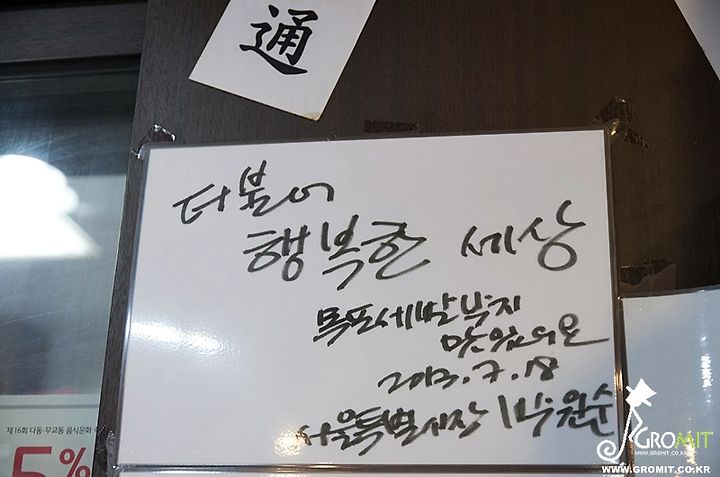 通
더불어
행복한 세상
목포세발낙지
맛있어요
2013.7.18
서울특별시장 박원순
제16회 다동·무교동 음식문화
5%
GROMIT
WWW.GROMIT.CO.KR
WWW.GROMIT.CO.KR